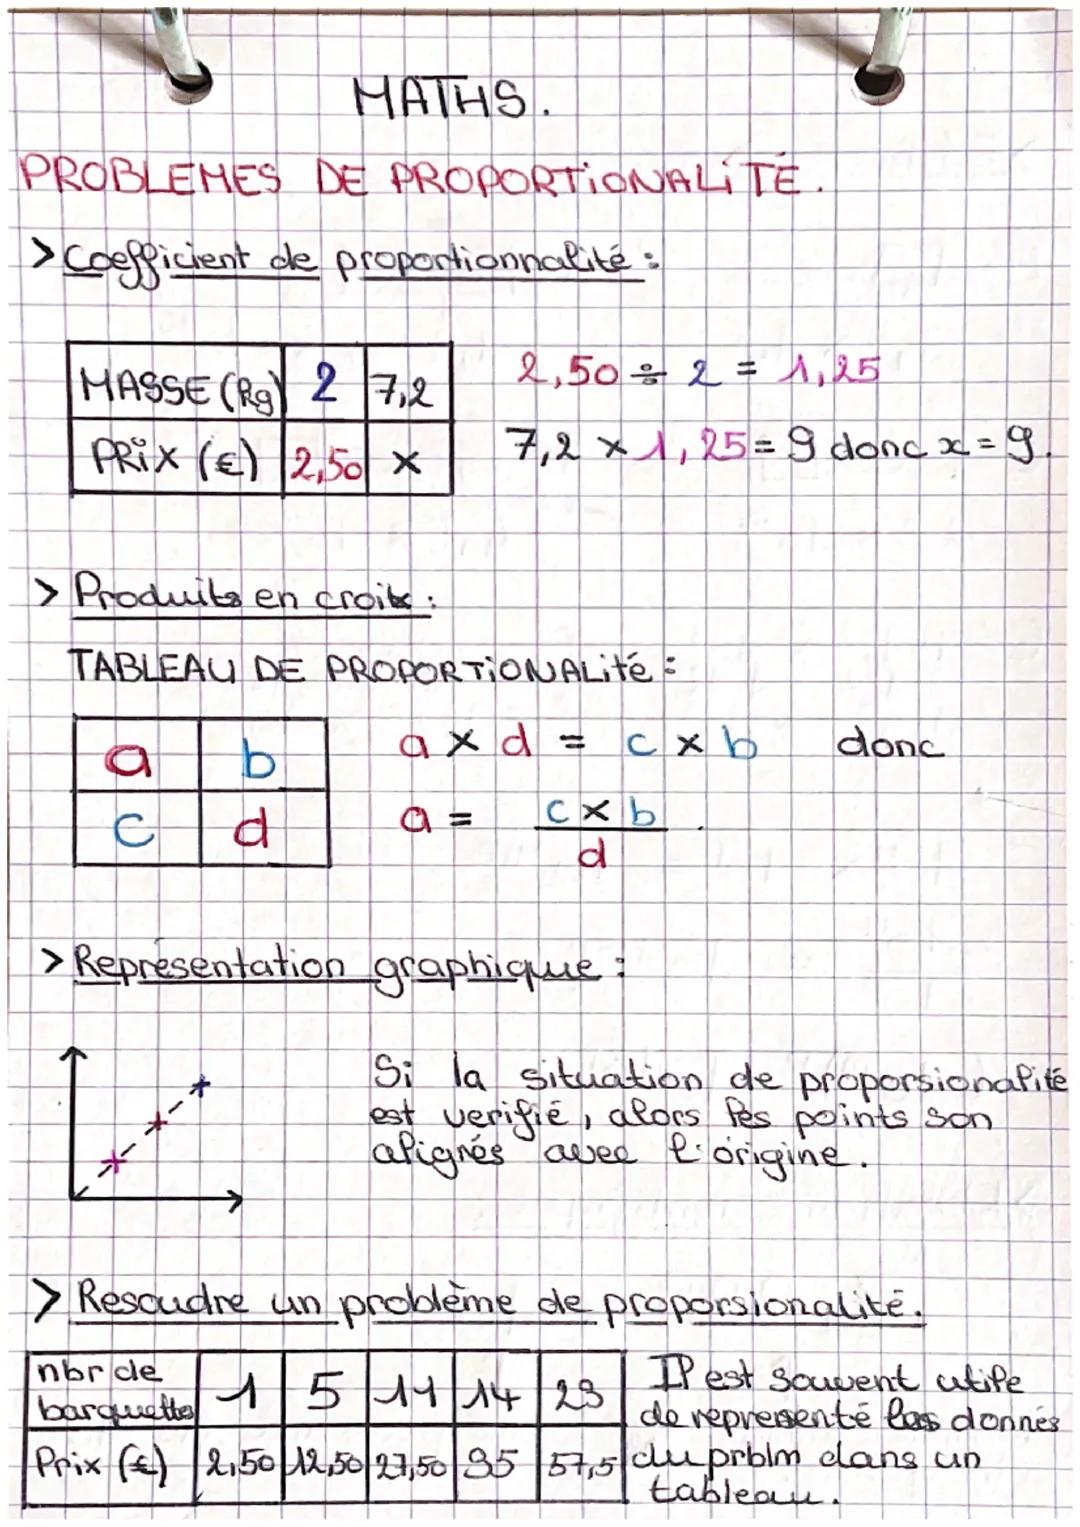 MATHS.
PROBLEMES DE PROPORTiONALiTÉ.
> Coefficient de proportionnalité :
MASSE (kg) 2 7,2
PRiX (€) 2,50 x
2,50 ÷ 2 = 1,25
7,2 x 1,25 = 9 donc x = 9.
> Produits en croix :
TABLEAU DE PROPORTiONALité :
a b
c d
a x d = c x b donc
a = c x b / d .
> Représentation graphique :
Si la situation de proporsionalité
est verifié, alors les points son
alignés avec l'origine.
> Resoudre un problème de proporsionalité.
nbr de
barquettes 1 5 11 14 23
Prix (€) 2,50 12,50 27,50 35 57,5
Il est souvent utile
de representé les donnés
du prblm dans un
tableau.